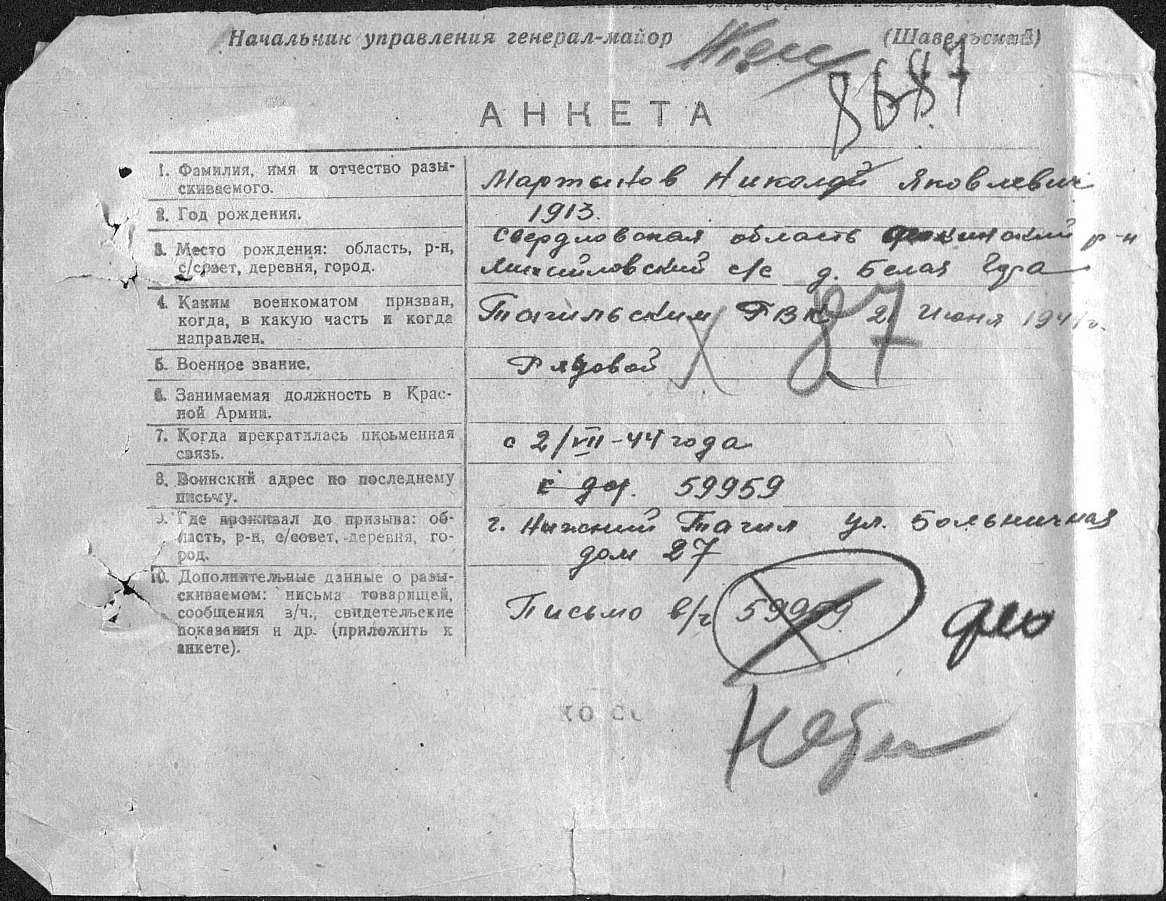 Начальник управления генерал-майор (Шавельский)
8687
АНКЕТА
1. Фамилия, имя и отчество разы-
скиваемого.
Мартынов Николай Яковлевич
2. Год рождения.
1913.
3. Место рождения: область, р-н,
с/совет, деревня, город.
Свердловская область р-н
Михайловский с/с д. Белая
4. Каким военкоматом призван,
когда, в какую часть и когда
направлен.
Тагильским РВК 2 Июня 1941 г.
87
5. Военное звание.
Рядовой
6. Занимаемая должность в Крас-
ной Армии.
7. Когда прекратилась письменная
связь.
с 2/VII-44 года
8. Воинский адрес по последнему
письму.
59959
9. Где проживал до призыва: об-
ласть, р-н, с/совет, деревня, го-
род.
г. Нижний Тагил ул. Больничная
дом 27
10. Дополнительные данные о разы-
скиваемом: письма товарищей,
сообщения в/ч., свидетельские
показания и др. (приложить к
анкете).
Письмо в/ч 59959